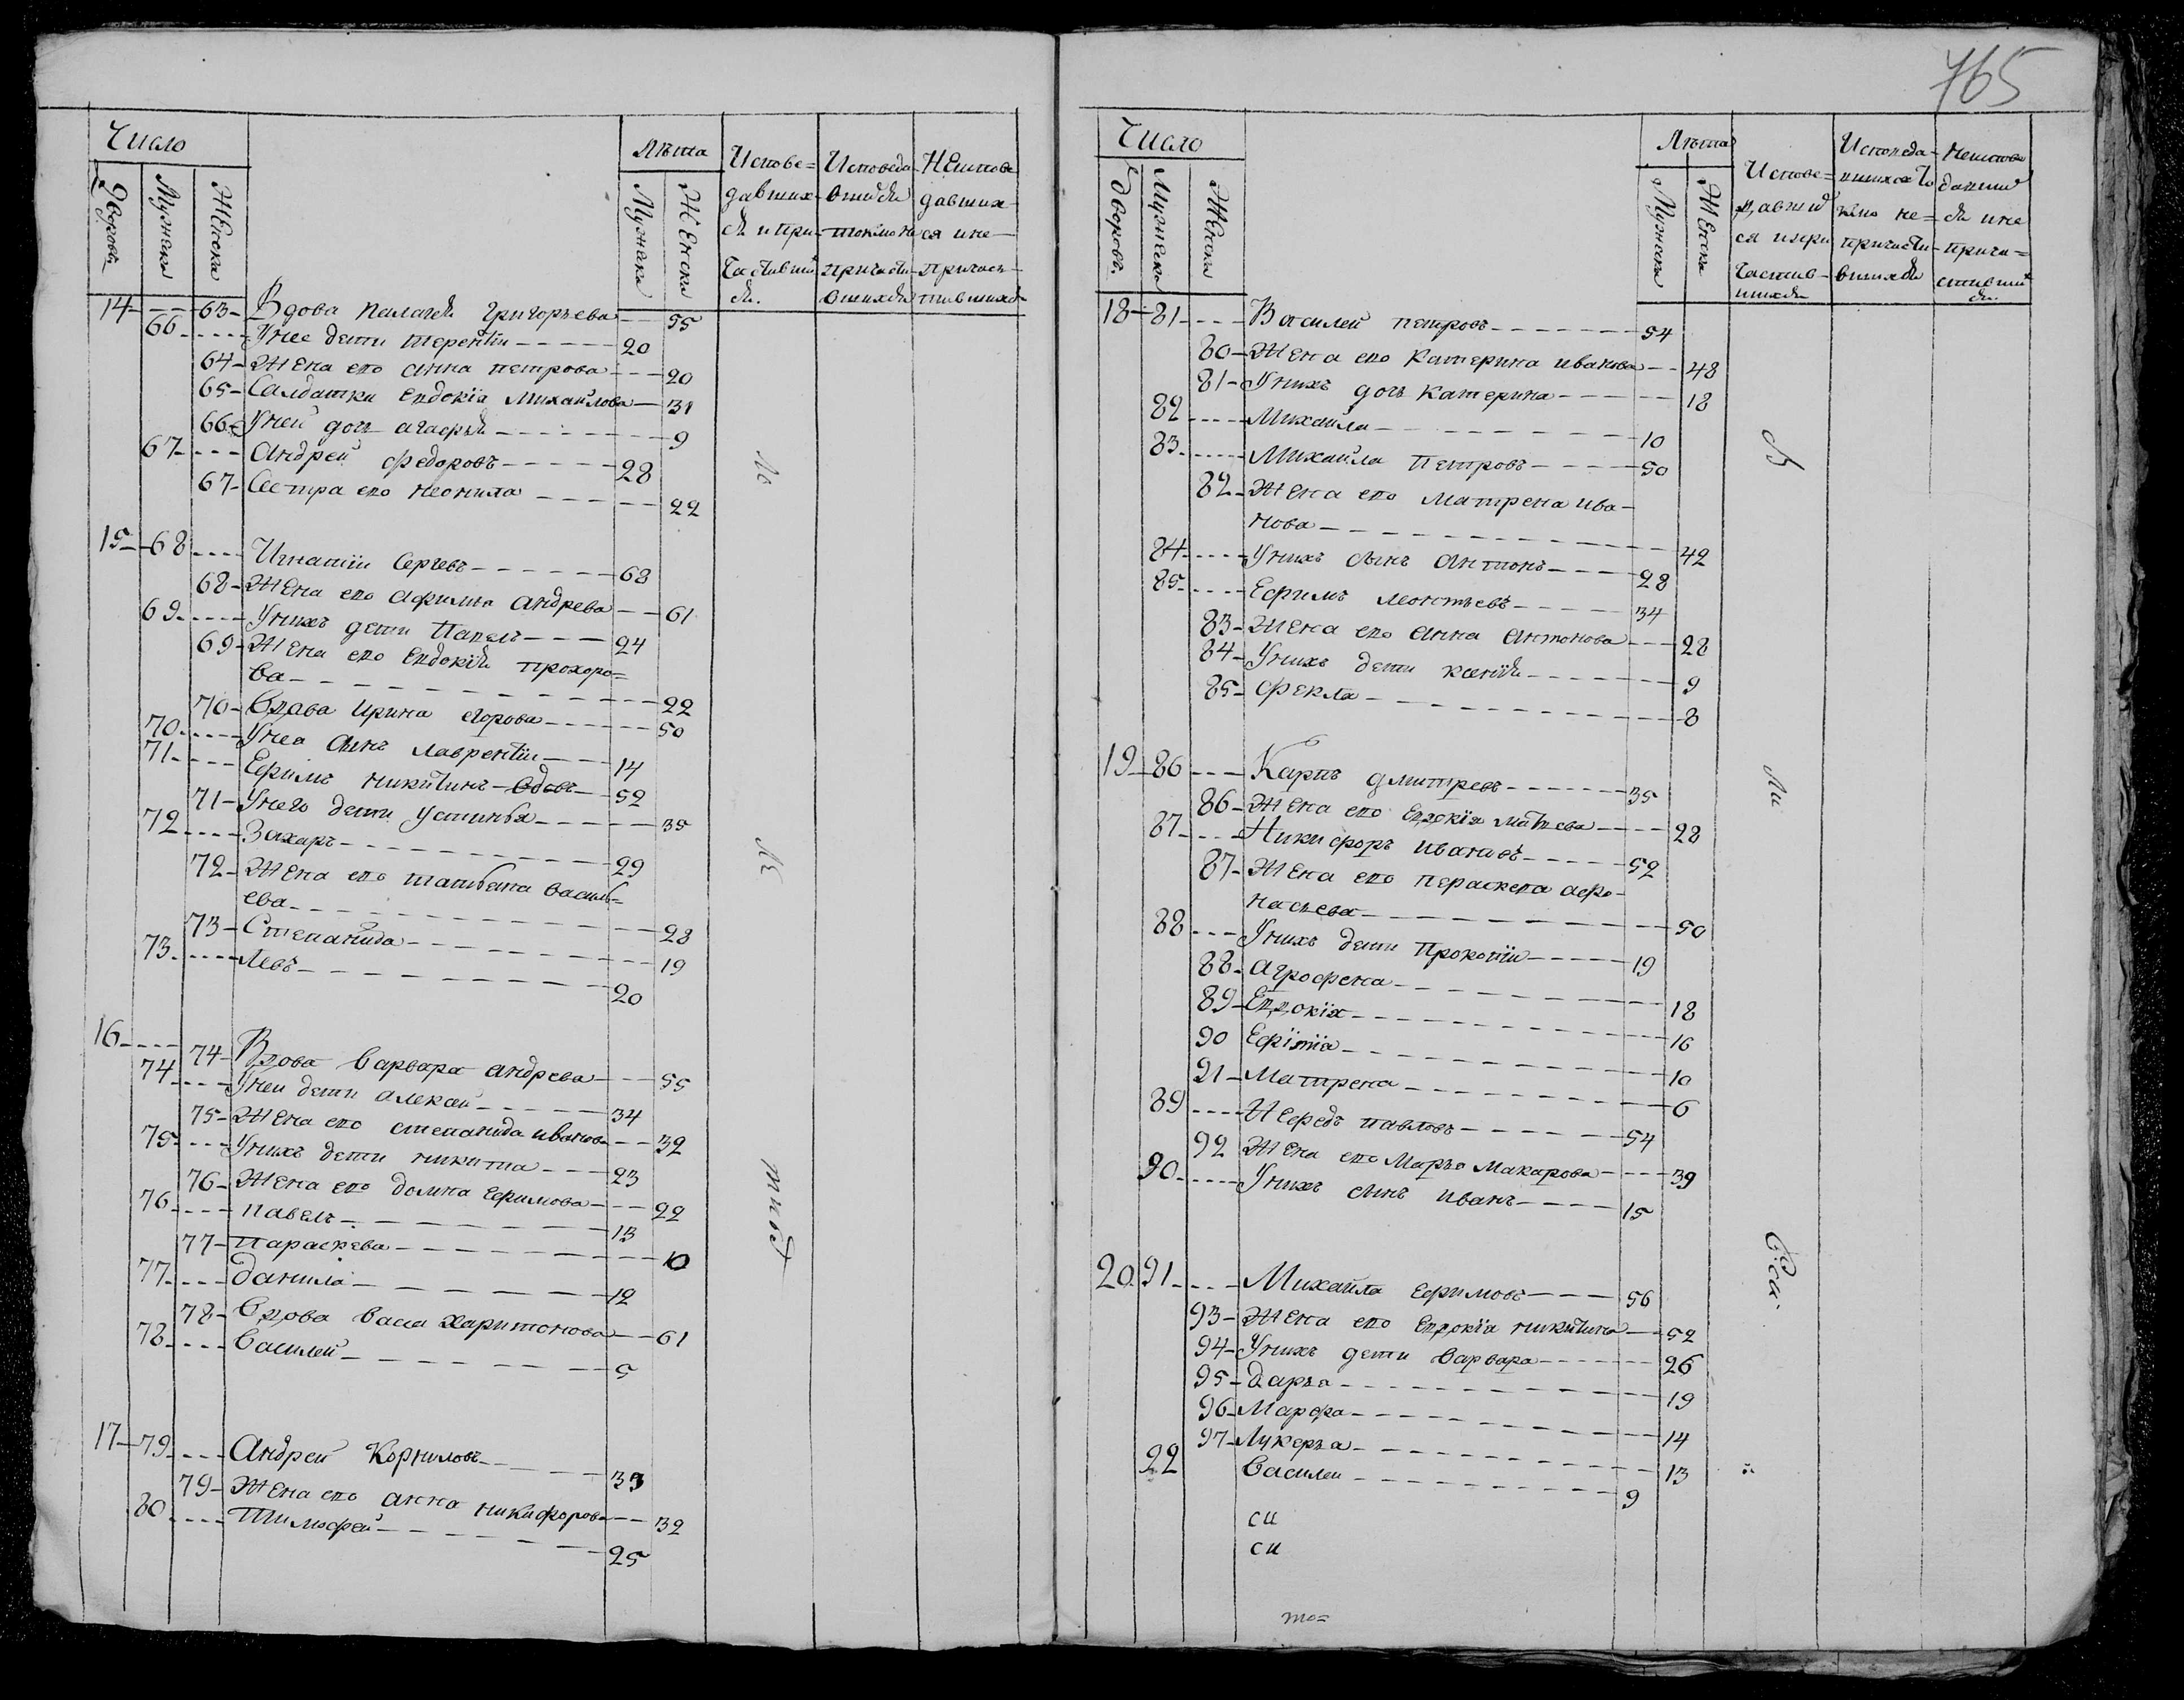 Число
Дворовъ Мужеска Женска
Лѣта
Мужеска Женска
Испове=
давших
ся и при-
частивши
ся.
Исповеда-
вшихся
токмо не
причасти-
вшихся
Неиспове
давших-
ся и не-
причас-
тившихся
14 - 63 - Вдова Пелагея Григорьева - 55
66 - У нее дети Терентiи - 20
64 - Жена его Анна Петрова - 20
65 - Салдатка Евдокiя Михайлова - 31
66 - У ней дочь Агафья - 9
67 - Андрей Федоровъ - 28
67 - Сестра его Неонила - 22
15 - 68 - Игнатiи Сергевъ - 68
68 - Жена его Афимья Андрева - 61
69 - У нихъ дети Павелъ - 24
69 - Жена его Евдокiя Прохоро=
ва - 22
70 - Вдава Ирина Егорова - 50
70 - У нея сынъ Лаврентiи - 14
71 - Ефимъ Никитинъ вдовъ - 52
71 - У него дети Устинья - 35
72 - Захаръ - 29
72 - Жена его Татьяна Василь=
ева - 28
73 - Степанида - 19
73 - Левъ - 20
16 - 74 - Вдова Варвара Андрева - 55
74 - У неи дети Алексеи - 34
75 - Жена его Степанида Иванова - 32
75 - У нихъ дети Никита - 23
76 - Жена его Домна Ефимова - 22
76 - Павелъ - 13
77 - Параскева - 10
77 - Данила - 12
78 - Вдова Васса Харитонова - 61
78 - Василеи - 5
17 - 79 - Андреи Корниловъ - 33
79 - Жена его Анна Никифорова - 32
80 - Тимофеи - 25
765
Число
Дворовъ. Мужеска Женска
Лѣта
Мужеска Женска
Испове=
давши
ся и при
частив-
шихся
Исповеда-
вшихся то
кмо не=
причасти-
вшихся
Неиспове
давши
ся и не
прича=
стивши
ся.
18 - 81 - Василеи Петровъ - 54
80 - Жена его Катерина Иванова - 48
81 - У нихъ дочь Катерина - 18
82 - Михаила - 10
83 - Михаила Петровъ - 50
82 - Жена его Матрена Ива-
нова - 42
84 - У нихъ сынъ Антонъ - 28
85 - Ефимъ Леонтьевъ - 34
83 - Жена его Анна Антонова - 28
84 - У нихъ дети Ксенiя - 9
85 - Фекла - 8
19 - 86 - Карпъ Дмитревъ - 35
86 - Жена его Евдокiя Матвева - 28
87 - Никифоръ Ивановъ - 52
87 - Жена его Пераскева Афо-
насьева - 50
88 - У нихъ дети Прокопiи - 19
88 - Агрофена - 18
89 - Евдокiя - 16
90 Ефiмiя - 10
91 - Матрена - 6
89 - Нефедъ Павловъ - 54
92 Жена его Марья Макарова - 39
90 - У нихъ сынъ Иванъ - 15
20 91 - Михаила Ефимовъ - 56
93 - Жена его Евдокiя Никитина - 52
94 - У нихъ дети Варвара - 26
95 - Дарья - 19
96 - Марфа - 14
97 - Лукерья - 13
22 Василеи - 9
си
си
то=